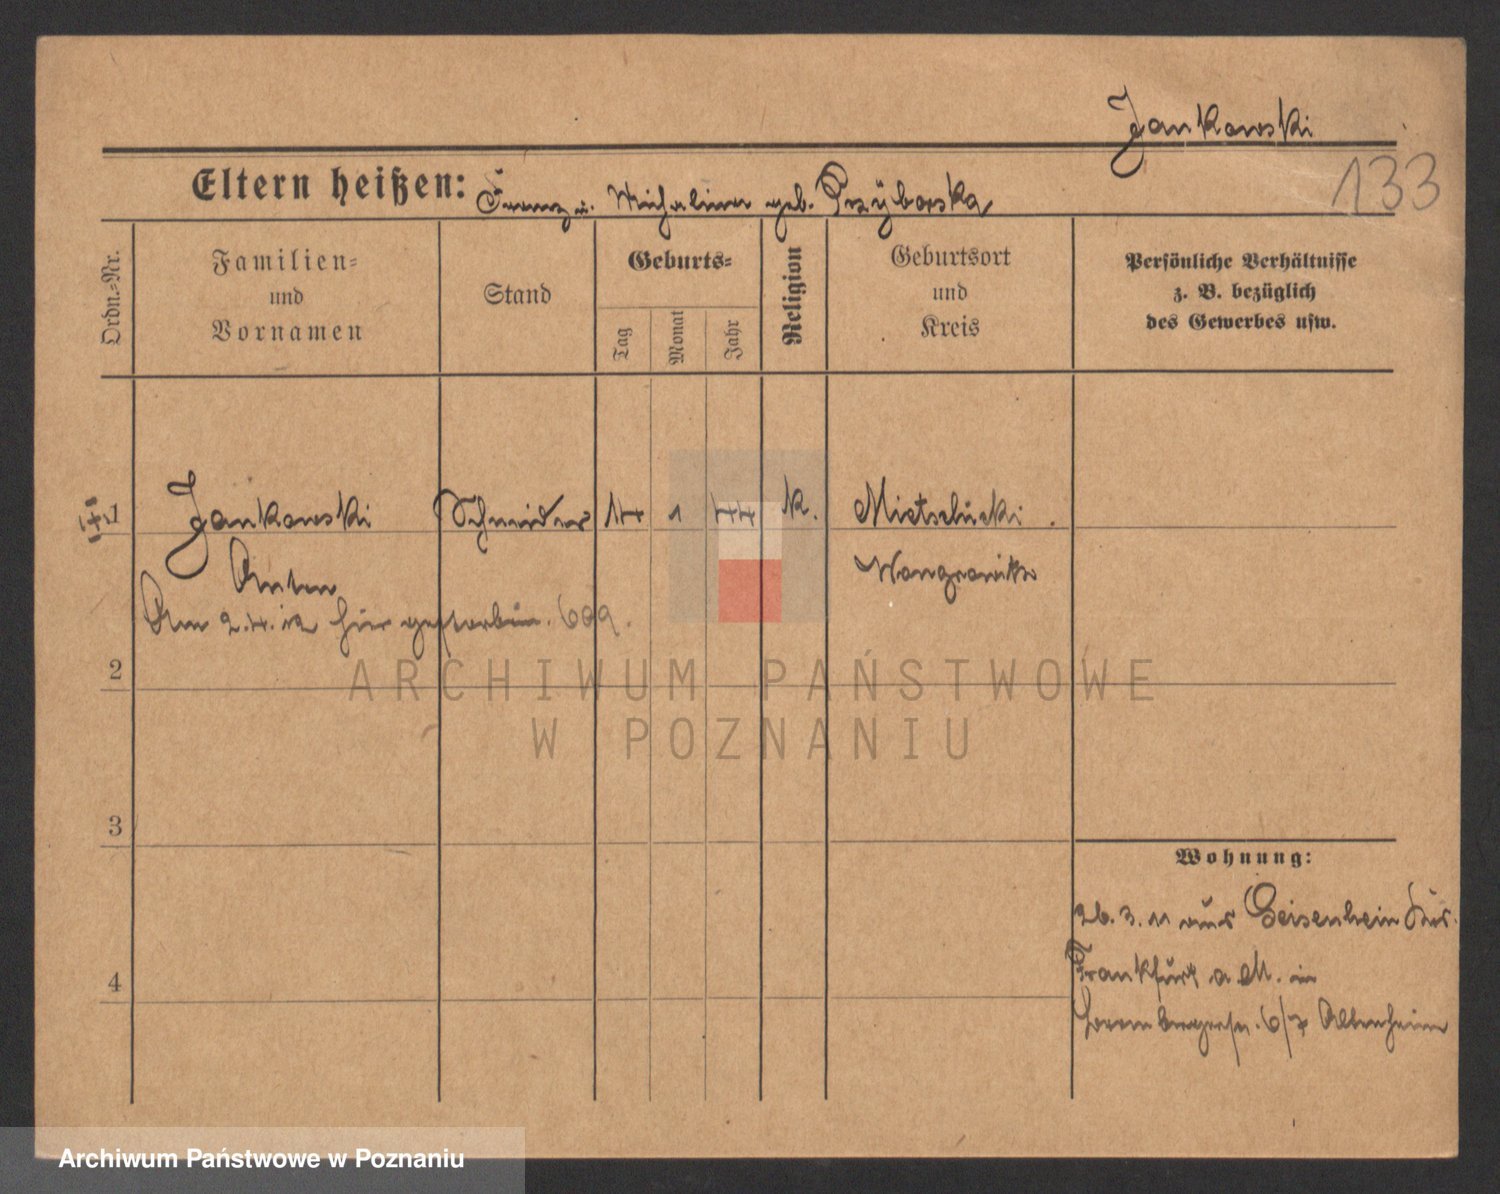 Jankowski
133
Eltern heißen: Franz u. Michalina geb. Przyborska
Ordn.-Nr.
Familien-
und
Vornamen
Stand
Geburts-
Tag
Monat
Jahr
Religion
Geburtsort
und
Kreis
Persönliche Verhältnisse
z. B. bezüglich
des Gewerbes usw.
1 Jankowski Schneider 14 1 44 k.
Anton
Wongrowitz
Am 2.4.12 hier gestorben. 609.
2
ARCHIWUM PAŃSTWOWE
W POZNANIU
3
4
Wohnung:
26. 3. 11 aus Geisenheim
Frankfurt a M. in
6/7 Altenheim
Archiwum Państwowe w Poznaniu